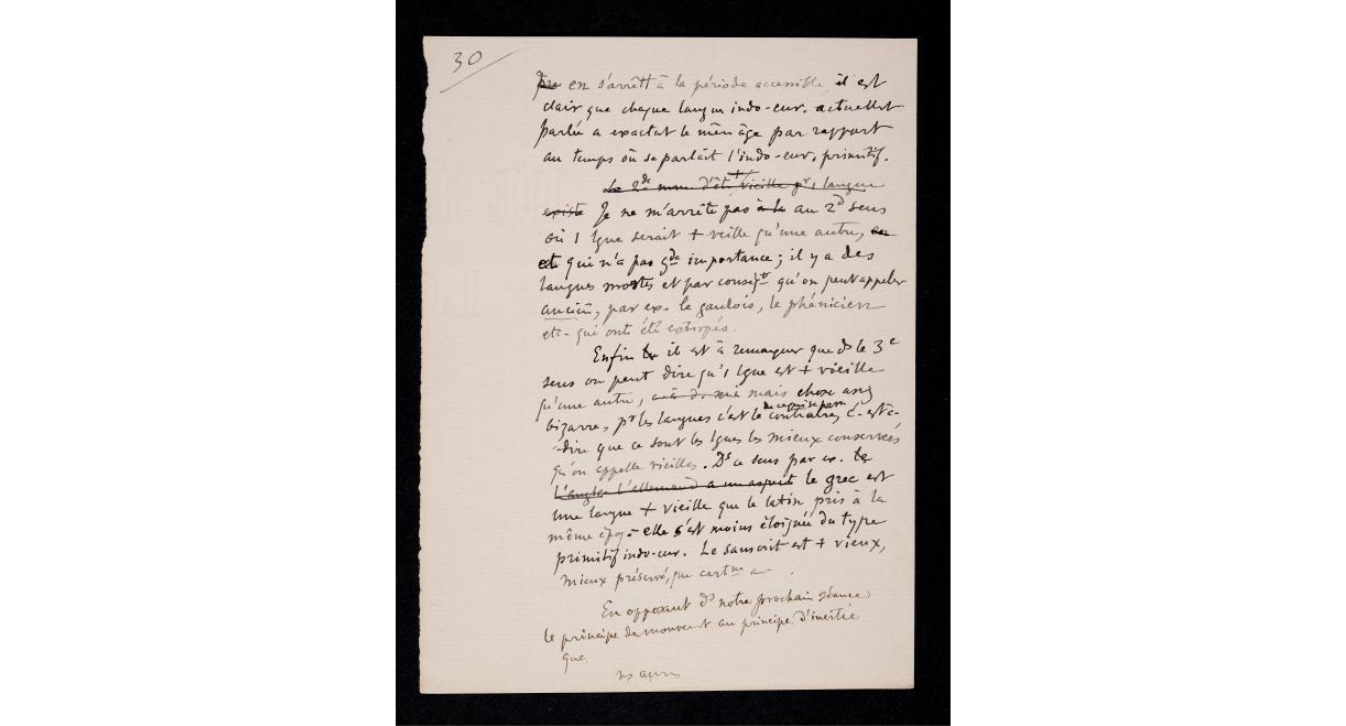 30
en s'arrêtt à la période accessible, il est
clair que chaque langue indo-eur. actuellet
parlée a exactat le mên âge par rapport
au temps où se parlait l'indo-eur. primitif.
La 2de d'êt + vieille pr 1 langue
existe Je ne m'arrête pas à la au 2d sens
où 1 lgue serait + veille qu'une autre,
et qui n'a pas gde importance ; il y a des
langues mortes et par conséqt qu'on peut appeler
ancien, par ex. le gaulois, le phénicien
etc- qui ont été extirpés.
Enfin il est à remarquer que ds le 3e
sens on peut dire qu'1 lgue est + vieille
qu'une autre, mais chose assez
bizarre, pr les langues c'est le contraire, c.-est-à-
-dire que ce sont les lgues les mieux conservées
qu'on appelle vieilles. Ds ce sens par ex. le
l'anglais l'allemand a un aspect le grec est
une langue + vieille que le latin pris à la
même époq - elle s'est moins éloignée du type
primitif indo-eur. Le sanscrit est + vieux,
mieux préservé, que
En opposant ds notre prochain séance
le principe du mouvent au principe d'inertie
que